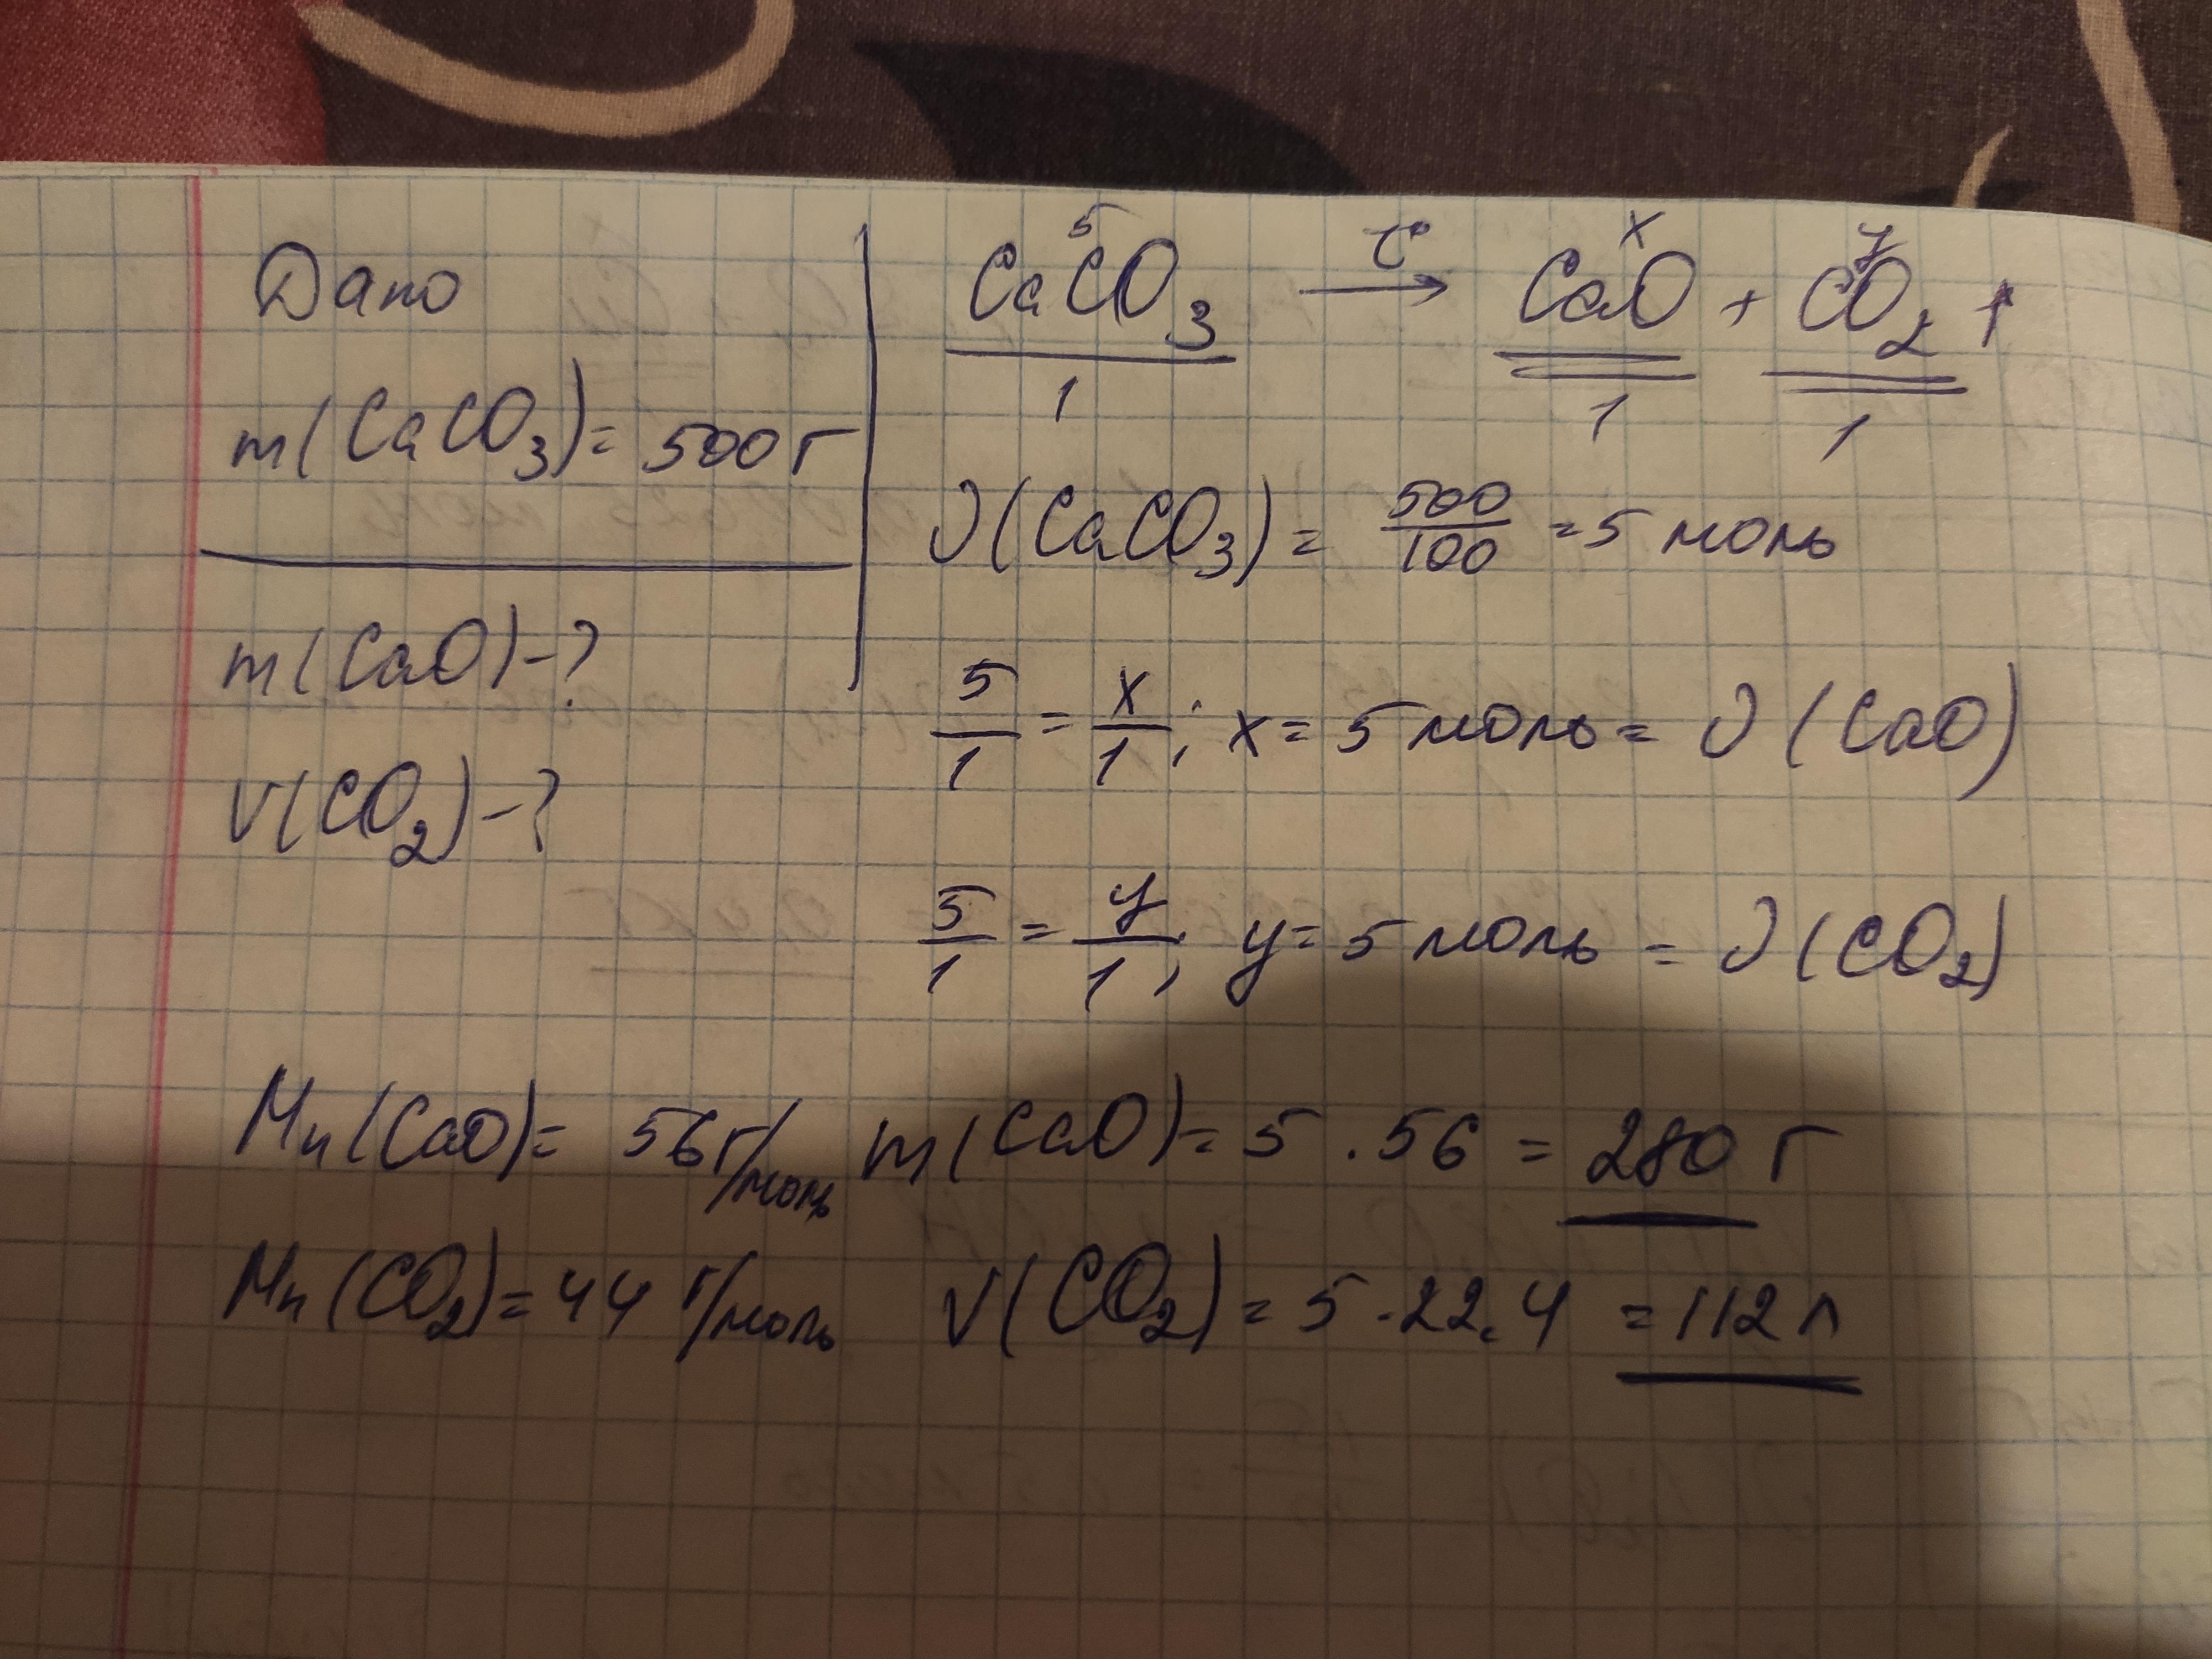 Дано
m(CaCO₃)= 500г
m(CaO)-?
V(CO₂)-?
5 t° x y
CaCO₃ → CaO + CO₂ ↑
1 1 1
ν(CaCO₃) = 500/100 = 5 моль
5/1 = x/1; x = 5 моль = ν(CaO)
5/1 = y/1; y = 5 моль = ν(CO₂)
Mn(CaO)= 56г/моль m(CaO)= 5 . 56 = 280 г
Mn(CO₂)= 44 г/моль V(CO₂) = 5 · 22.4 = 112 л